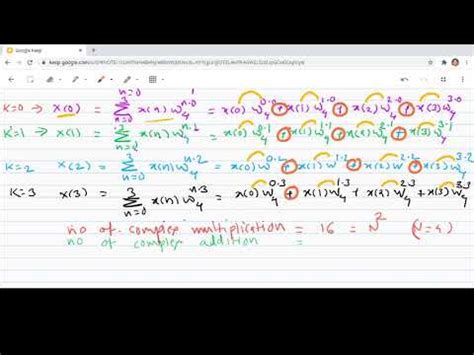 Google Keep
n=0
K=0 → x(0) = Σ x(n) W₄^{n·0} = x(0) W₄^{0·0} + x(1) W₄^{1·0} + x(2) W₄^{2·0} + x(3) W₄^{3·0}
n=0
K=1 → x(1) = Σ x(n) W₄^{n·1} = x(0) W₄^{0·1} + x(1) W₄^{1·1} + x(2) W₄^{2·1} + x(3) W₄^{3·1}
K=2 x(2) = Σ x(n) W₄^{n·2} = x(0) W^{0·2} + x(1) W^{1·2} + x(2) W + x(3) W
3
K=3 x(3) = Σ x(n) W₄^{n·3} = x(0) W₄^{0·3} + x(1) W₄^{1·3} + x(2) W₄^{2·3} + x(3) W₄^{3·3}
n=0
no of complex multiplication = 16 = N² (N=4)
no of complex addition =